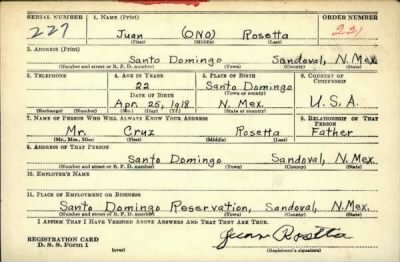 SERIAL NUMBER 1. NAME (Print) ORDER NUMBER
227 Juan (ONO) Rosetta 221
(First) (Middle) (Last)
2. ADDRESS (Print)
Santo Domingo Sandoval, N.Mex.
(Number and street or R. F. D. number) (Town) (County) (State)
3. TELEPHONE 4. AGE IN YEARS 5. PLACE OF BIRTH 6. COUNTRY OF CITIZENSHIP
22 Santo Domingo
DATE OF BIRTH (Town or county)
Apr. 25, 1918. N. Mex. U.S.A.
(Exchange) (Number) (Mo.) (Day) (Yr.) (State or country)
7. NAME OF PERSON WHO WILL ALWAYS KNOW YOUR ADDRESS 8. RELATIONSHIP OF THAT PERSON
Mr. Cruz Rosetta Father
(Mr., Mrs., Miss) (First) (Middle) (Last)
9. ADDRESS OF THAT PERSON
Santo Domingo Sandoval, N.Mex.
(Number and street or R. F. D. number) (Town) (County) (State)
10. EMPLOYER'S NAME
11. PLACE OF EMPLOYMENT OR BUSINESS
Santo Domingo Reservation, Sandoval, N.Mex.
(Number and street or R. F. D. number) (Town) (County) (State)
I AFFIRM THAT I HAVE VERIFIED ABOVE ANSWERS AND THAT THEY ARE TRUE.
REGISTRATION CARD
D. S. S. Form 1 (over) Juan Rosetta
(Registrant's signature)